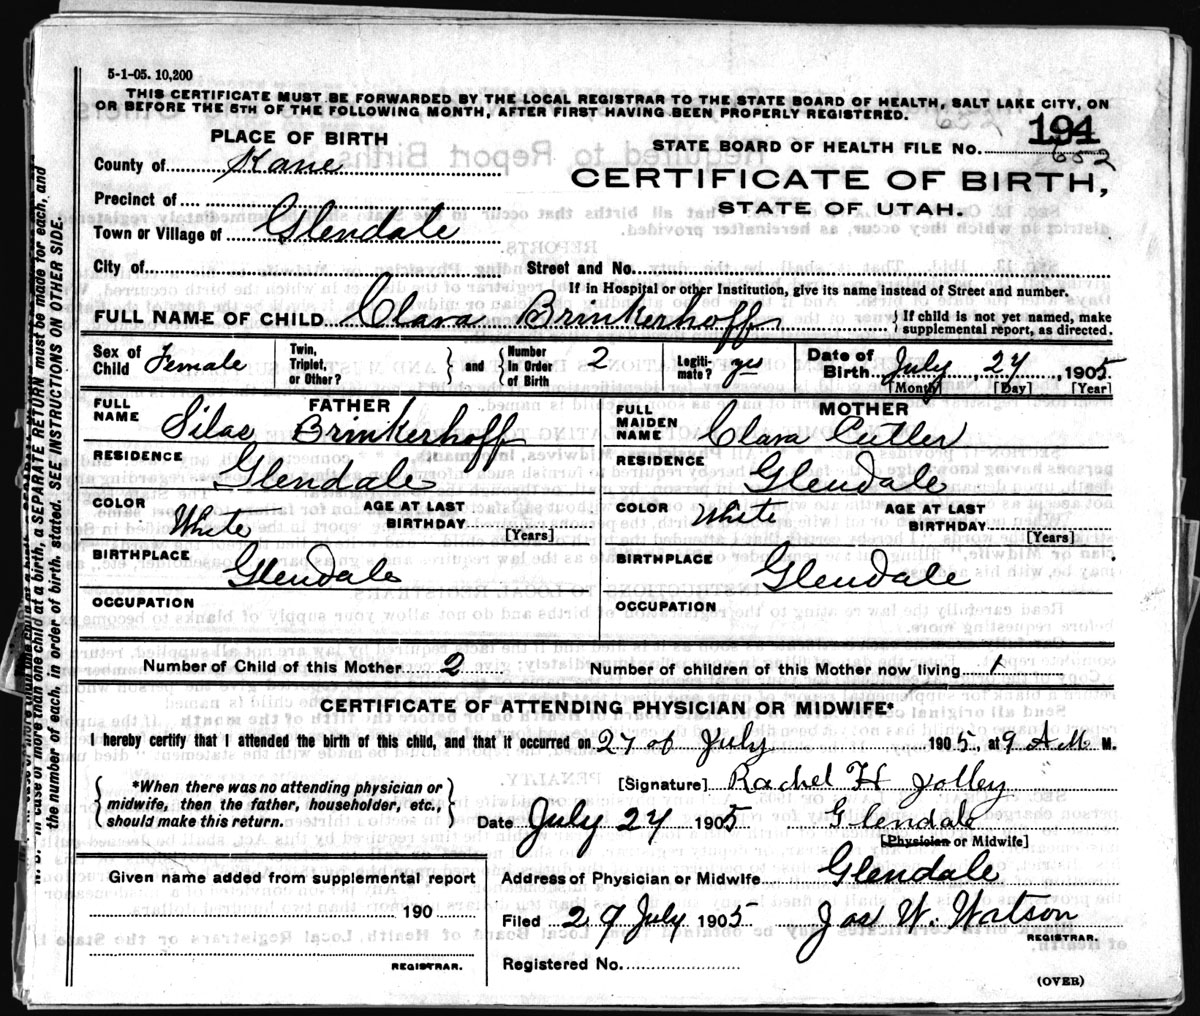 5-1-05. 10,200
THIS CERTIFICATE MUST BE FORWARDED BY THE LOCAL REGISTRAR TO THE STATE BOARD OF HEALTH, SALT LAKE CITY, ON
OR BEFORE THE 5TH OF THE FOLLOWING MONTH, AFTER FIRST HAVING BEEN PROPERLY REGISTERED.
652
PLACE OF BIRTH
STATE BOARD OF HEALTH FILE NO. 194
652
County of Kane
CERTIFICATE OF BIRTH,
STATE OF UTAH.
Precinct of
Town or Village of Glendale
City of
Street and No.
If in Hospital or other Institution, give its name instead of Street and number.
FULL NAME OF CHILD Clara Brinkerhoff } If child is not yet named, make supplemental report, as directed.
Sex of Child Female Twin, Triplet, or Other? } and { Number in Order of Birth 2 Legiti-mate? yes Date of Birth July, 24, 1905
[Month] [Day] [Year]
FATHER
FULL NAME Silas Brinkerhoff
MOTHER
FULL MAIDEN NAME Clara Cutler
RESIDENCE Glendale
RESIDENCE Glendale
COLOR White AGE AT LAST BIRTHDAY [Years]
COLOR White AGE AT LAST BIRTHDAY [Years]
BIRTHPLACE Glendale
BIRTHPLACE Glendale
OCCUPATION
OCCUPATION
Number of Child of this Mother 2 Number of children of this Mother now living 1
CERTIFICATE OF ATTENDING PHYSICIAN OR MIDWIFE*
I hereby certify that I attended the birth of this child, and that it occurred on 27 of July 1905, at 9 A.M. M.
{ *When there was no attending physician or midwife, then the father, householder, etc., should make this return. }
[Signature] Rachel H Jolley
Date July 24 1905 Glendale
[Physician or Midwife]
Given name added from supplemental report
190
REGISTRAR.
Address of Physician or Midwife Glendale
Filed 29 July 1905 Jas W. Watson
REGISTRAR.
Registered No.
(OVER)
in case of more than one child at a birth, a SEPARATE RETURN must be made for each, and
the number of each, in order of birth, stated. SEE INSTRUCTIONS ON OTHER SIDE.